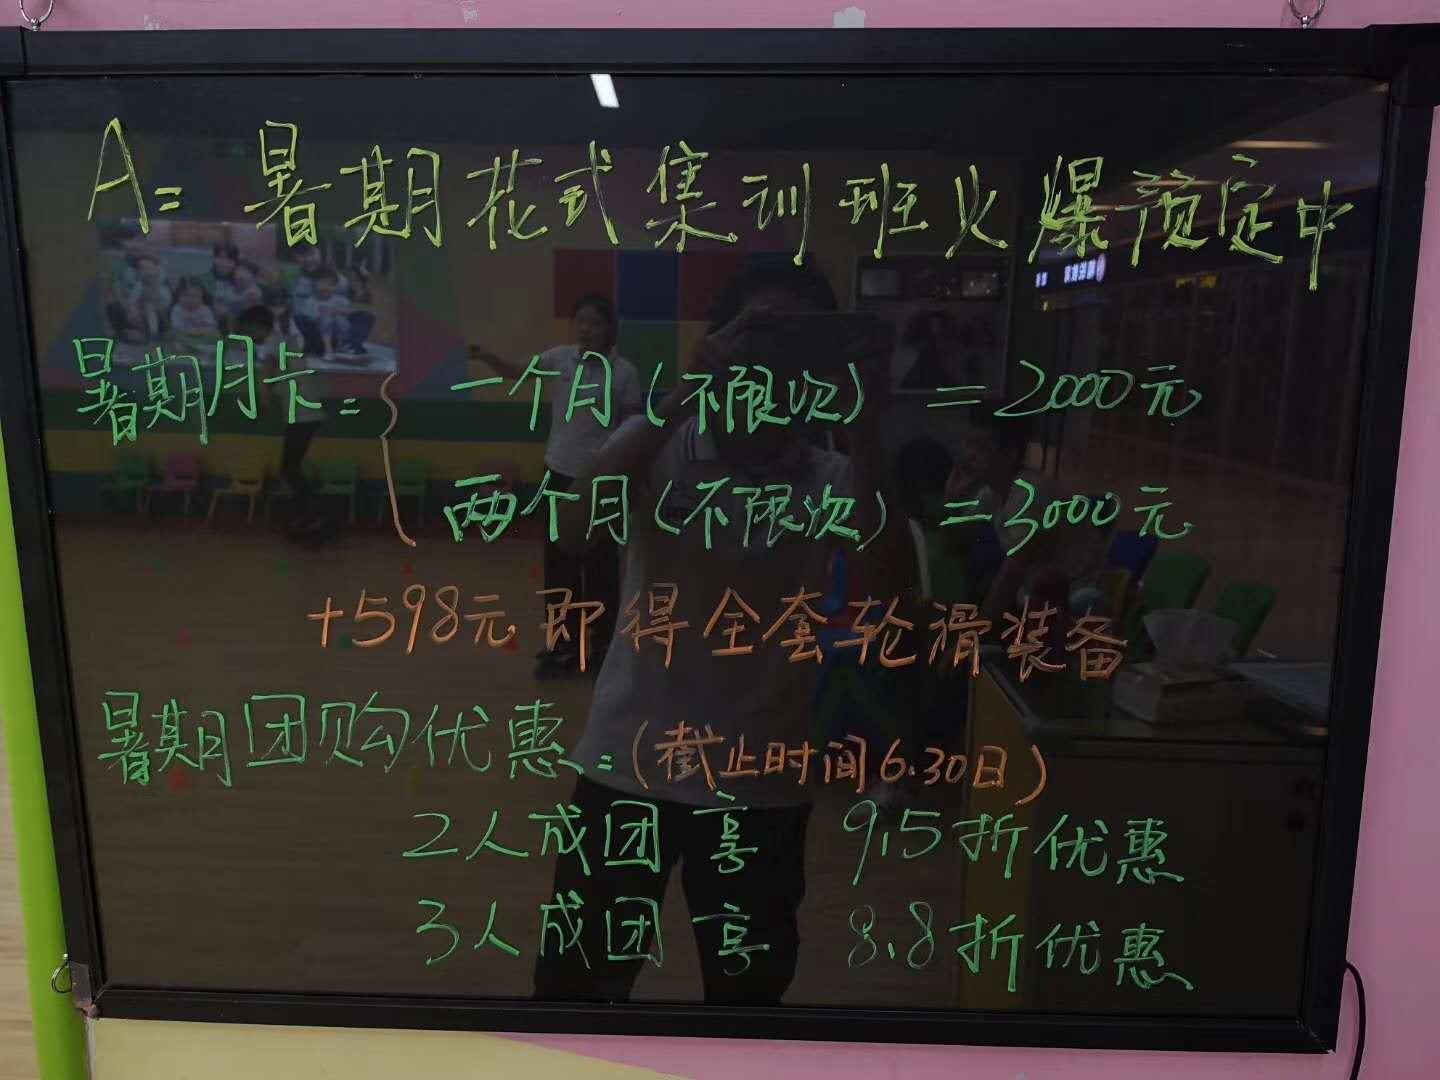 A= 暑期花式集训班火爆预定中
暑期月卡= 一个月(不限次) =2000元
两个月(不限次) =3000元
+598元即得全套轮滑装备
暑期团购优惠:(截止时间6.30日)
2人成团享 9.5折优惠
3人成团享 8.8折优惠